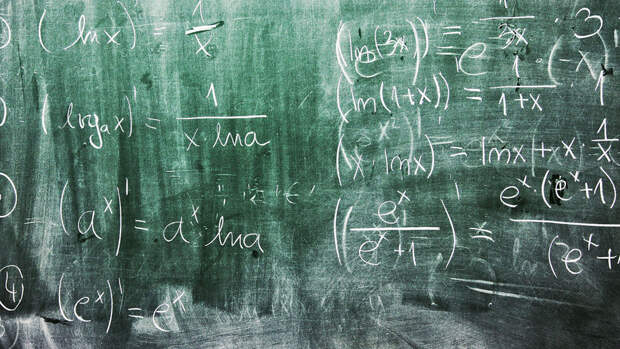 (ln x)' = 1/x
(log_a x)' = 1/(x · ln a)
= (a^x)' = a^x · ln a
④ (e^x)' = e^x
(ln(3x))' = 1/3x · 3
(ln(1+x))' = 1/(1+x)
(x · ln x)' = ln x + x · 1/x
(e^x/(e^x+1))' = e^x · (e^x+1)/(e^x+